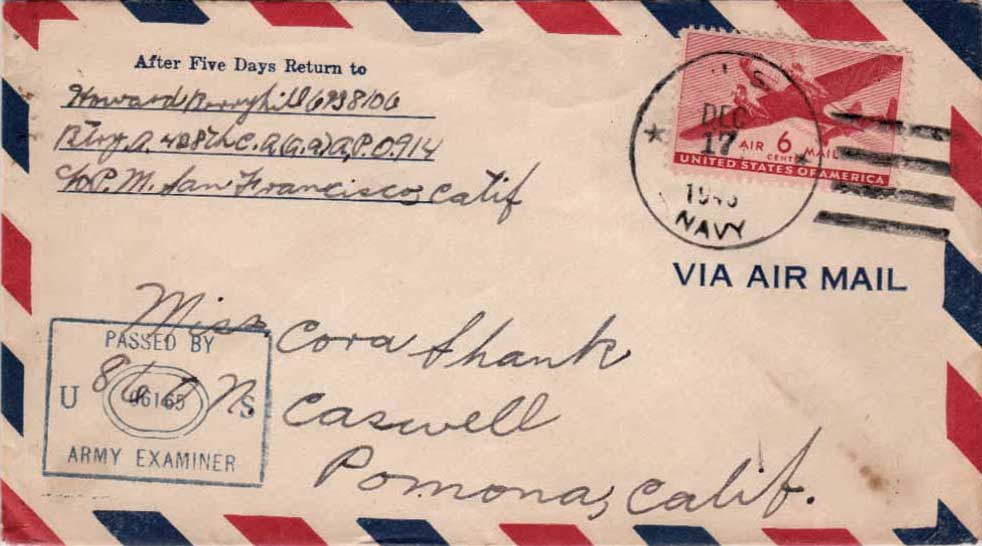 After Five Days Return to
Howard Berryhill 6938106
Btry. A. 428th C.A.(G.a) A.P.O. 914
c/o P.M. San Francisco, Calif
U.S.
DEC
17
NAVY
AIR 6 MAIL
CENTS
UNITED STATES OF AMERICA
VIA AIR MAIL
Miss. Cora Shank
N. Caswell
Pomona, Calif.
PASSED BY
U 06165 S
ARMY EXAMINER